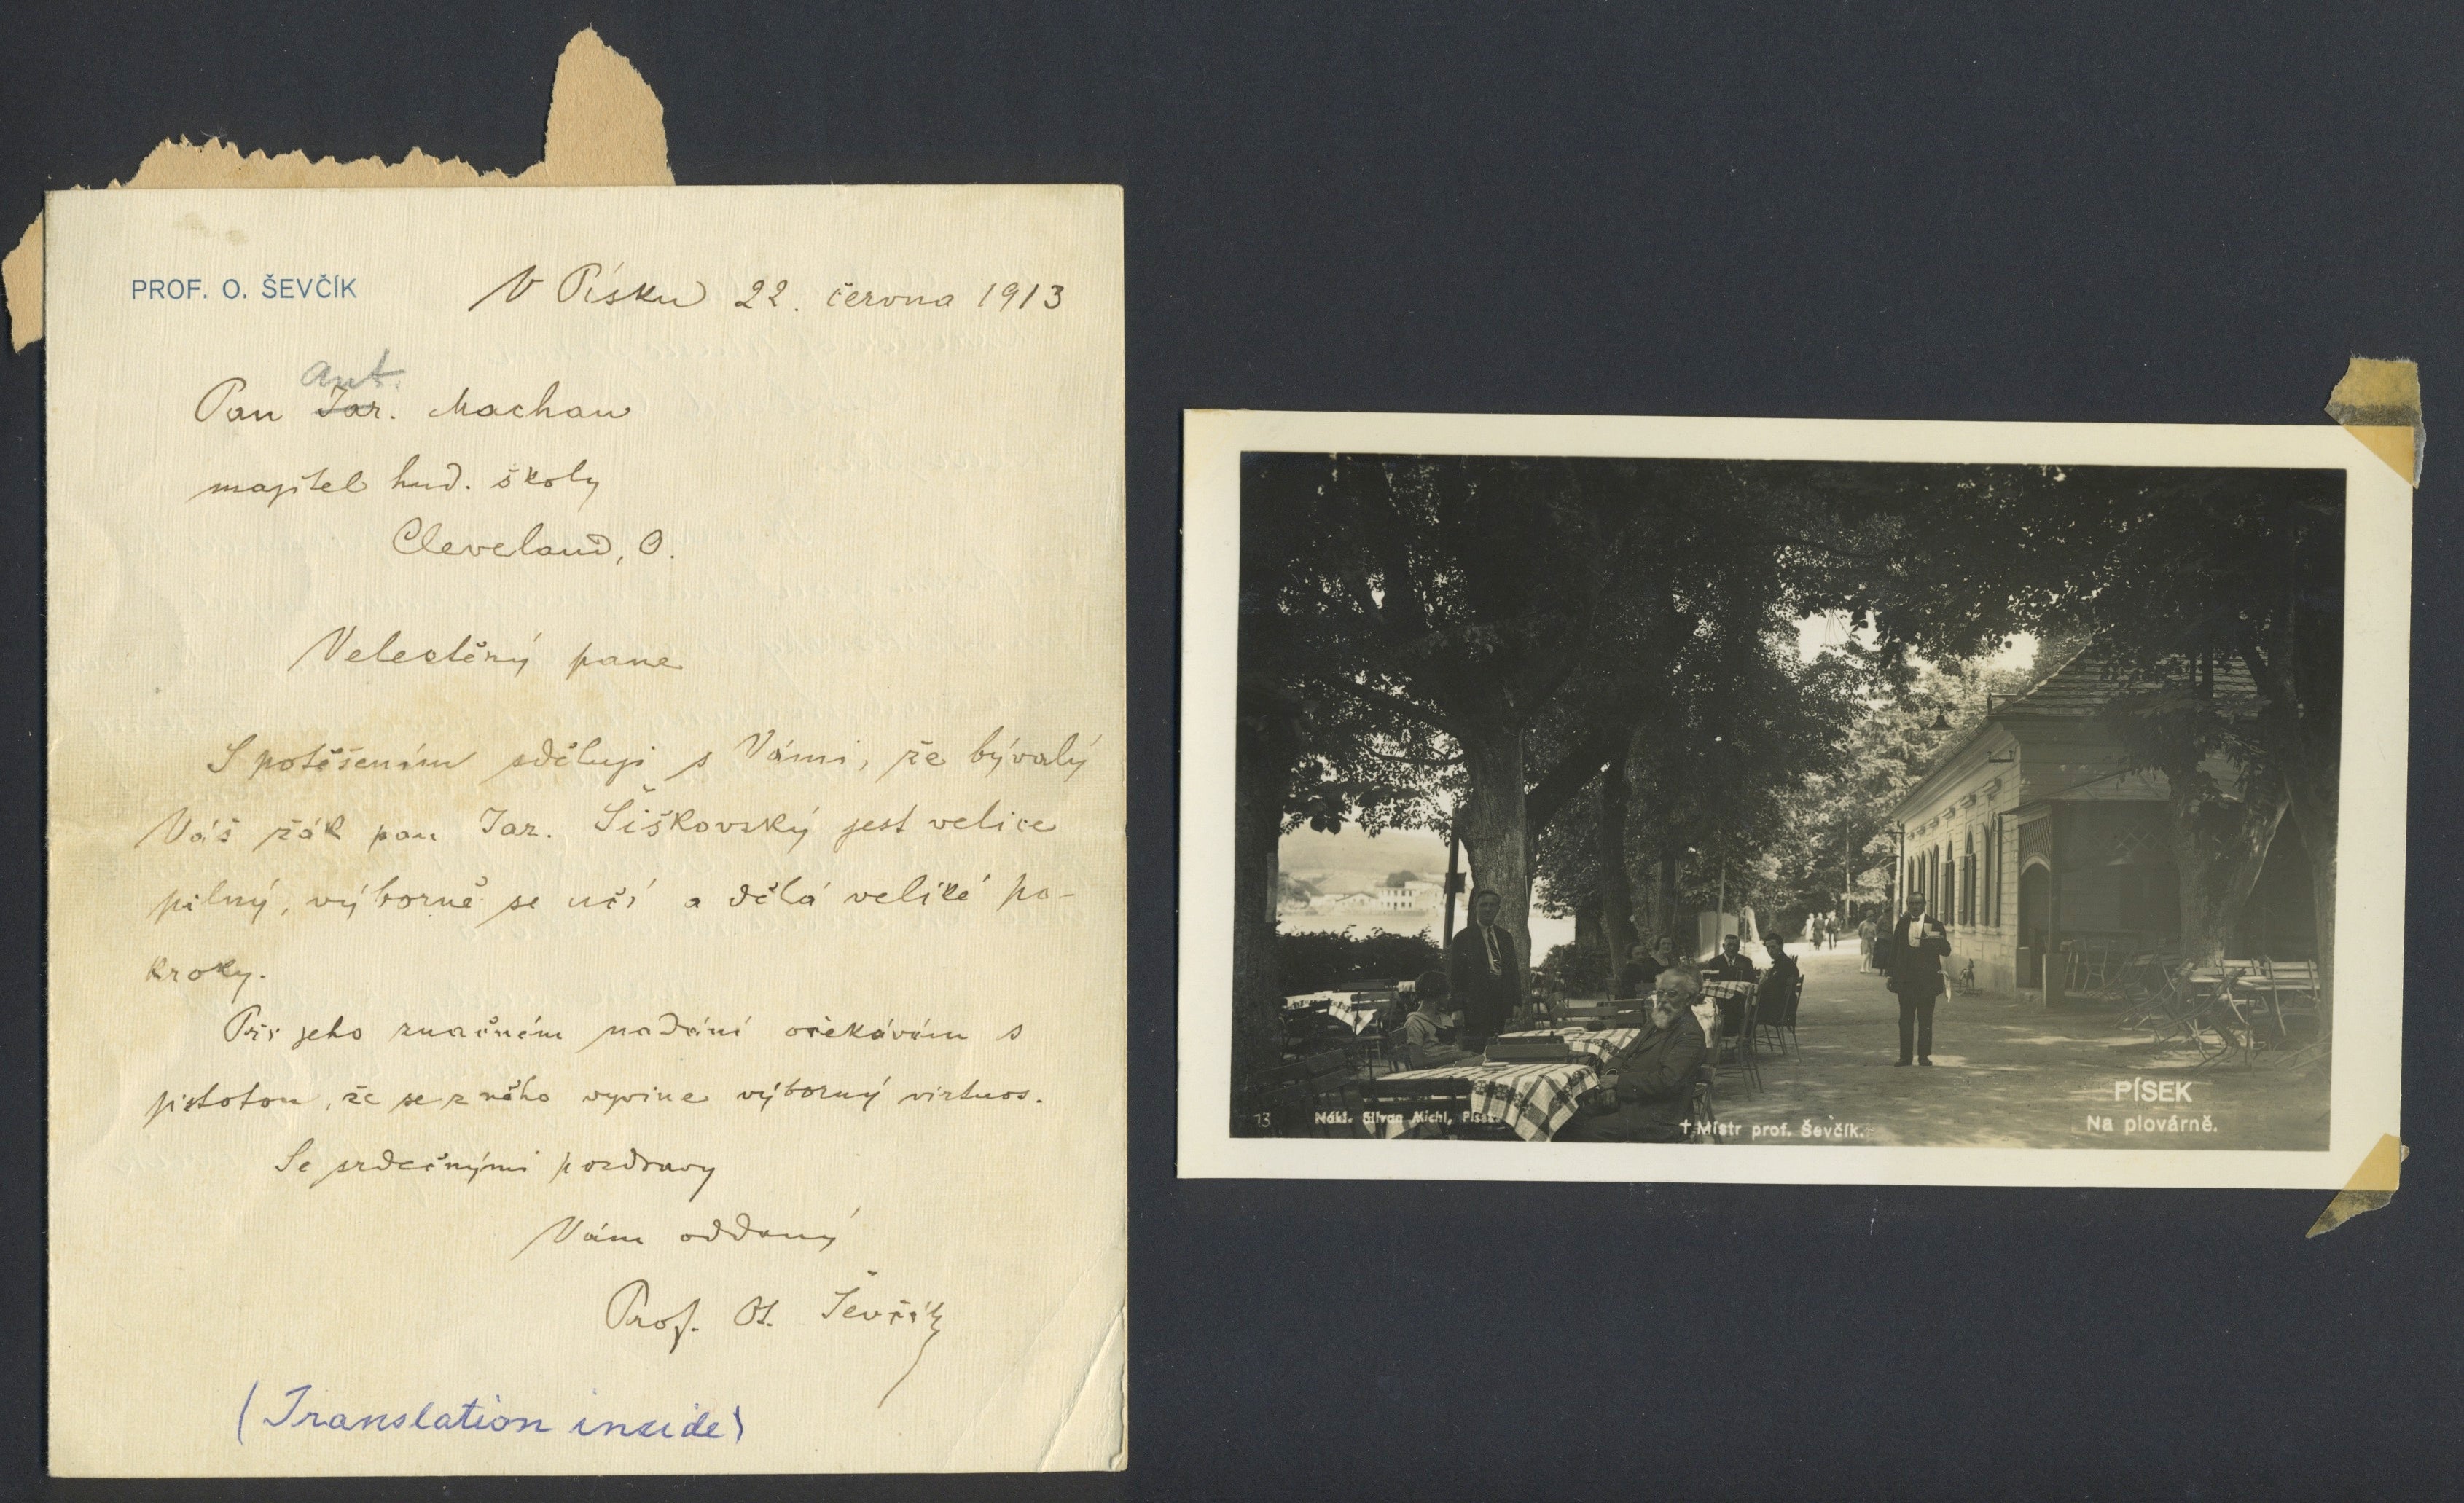 PROF. O. ŠEVČÍK
V Písku 22. června 1913
Ant.
Pan Jar. Machan
majitel hud. školy
Cleveland, O.
Velectěný pane
S potěšením sděluji s Vámi, že bývalý
Váš žák pan Jar. Šiškovský jest velice
pilný, výborně se učí a dělá veliké po-
kroky.
Při jeho značném nadání očekávám s
jistotou, že se z něho vyvine výborný virtuos.
Se srdečnými pozdravy
Vám oddaný
Prof. Ot. Ševčík
(Translation inside)
PÍSEK
Na plovárně.
13 Nákl. Silvan Michl, Písek.
† Mistr prof. Ševčík.